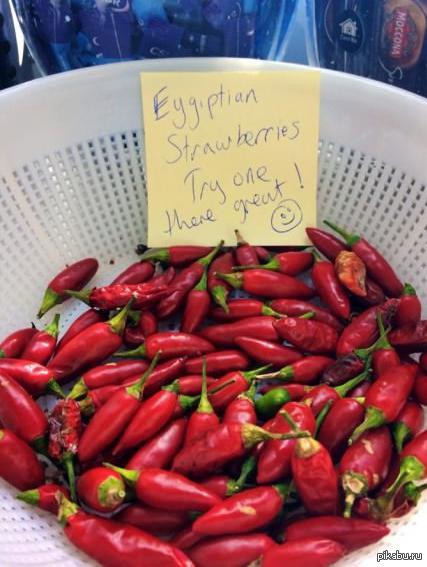 MOCCONA
Eygiptian
Strawberries
Try one
there great!
pikabu.ru